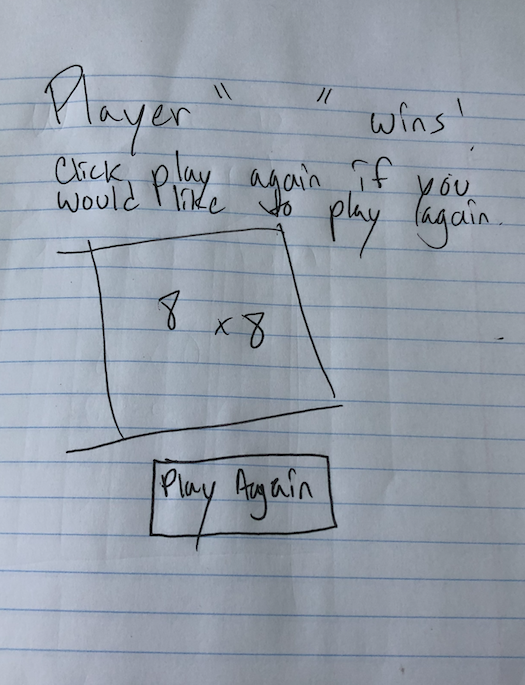 Player " " wins!
Click play again if you
would like to play again.
8 x 8
Play Aagain